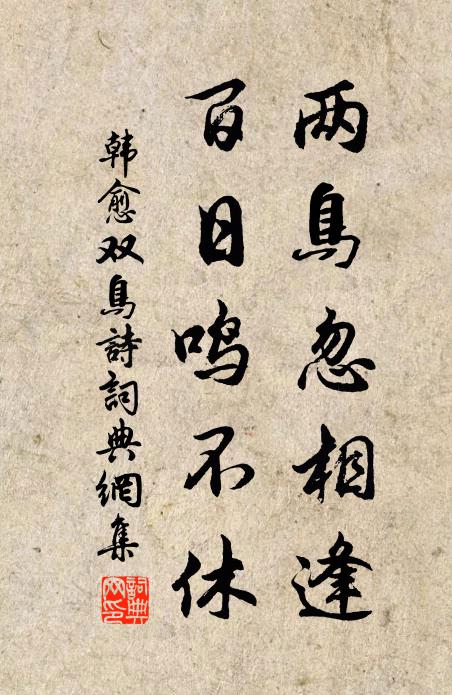 两鳥忽相逢
百日鸣不休
韩愈双鳥詩詞典網集
詞典網印